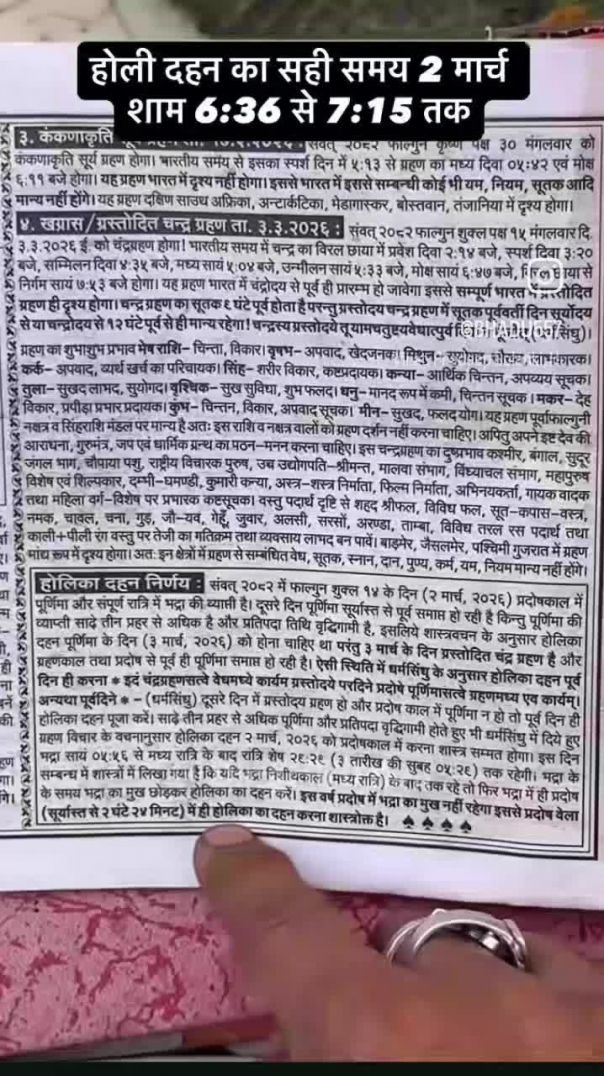 होली दहन का सही समय 2 मार्च
शाम 6:36 से 7:15 तक
३. कंकणाकृति संवत् २०८२ फाल्गुन कृष्ण पक्ष ३० मंगलवार को
कंकणाकृति सूर्य ग्रहण होगा। भारतीय समय से इसका स्पर्श दिन में ५:१३ से ग्रहण का मध्य दिवा ०५:४२ एवं मोक्ष
६:११ बजे होगा। यह ग्रहण भारत में दृश्य नहीं होगा। इससे भारत में इससे सम्बन्धी कोई भी यम, नियम, सूतक आदि
मान्य नहीं होंगे। यह ग्रहण दक्षिण साउथ अफ्रिका, अन्टार्कटिका, मेडागास्कर, बोस्तवान, तंजानिया में दृश्य होगा।
४. खग्रास/प्रस्तोदित चन्द्र ग्रहण ता. ३.३.२०२६ : संवत् २०८२ फाल्गुन शुक्ल पक्ष १५ मंगलवार दि.
३.३.२०२६ ई. को चंद्रग्रहण होगा। भारतीय समय में चन्द्र का विरल छाया में प्रवेश दिवा २:१४ बजे, स्पर्श दिवा ३:२०
बजे, सम्मिलन दिवा ४:३५ बजे, मध्य सायं ५:०४ बजे, उन्मीलन सायं ५:३३ बजे, मोक्ष सायं ६:४७ बजे, छाया से
निर्गम सायं ७:५३ बजे होगा। यह ग्रहण भारत में चंद्रोदय से पूर्व ही प्रारम्भ हो जावेगा इससे सम्पूर्ण भारत में प्रस्तोदित
ग्रहण ही दृश्य होगा। चन्द्र ग्रहण का सूतक ९ घंटे पूर्व होता है परन्तु प्रस्तोदय चन्द्र ग्रहण में सूतक पूर्ववर्ती दिन सूर्योदय
से या चन्द्रोदय से १२ घंटे पूर्व से ही मान्य रहेगा! चन्द्रस्य प्रस्तोदये तु यामचतुष्टयवेधात्पूर्व
@BHADU65
ग्रहण का शुभाशुभ प्रभाव मेष राशि- चिन्ता, विकार। वृषभ- अपवाद, खेदजनक। मिथुन- लाभकारक।
कर्क- अपवाद, व्यर्थ खर्च का परिचायक। सिंह- शरीर विकार, कष्टप्रदायक। कन्या- आर्थिक चिन्तन, अपव्यय सूचक।
तुला- सुखद लाभद, सुयोगद। वृश्चिक- सुख सुविधा, शुभ फलद। धनु- मानद रूप में कमी, चिन्तन सूचक। मकर- देह
विकार, प्रपीड़ा प्रभार प्रदायक। कुंभ- चिन्तन, विकार, अपवाद सूचक। मीन- सुखद, फलद योग। यह ग्रहण पूर्वाफाल्गुनी
नक्षत्र व सिंह राशि मंडल पर मान्य है अतः इस राशि व नक्षत्र वालों को ग्रहण दर्शन नहीं करना चाहिए। अपितु अपने इष्ट देव की
आराधना, गुरुमंत्र, जप एवं धार्मिक ग्रन्थ का पठन-मनन करना चाहिए। इस चन्द्रग्रहण का दुष्प्रभाव कश्मीर, बंगाल, सुदूर
जंगल भाग, चौपाया पशु, राष्ट्रीय विचारक पुरुष, उच उद्योगपति-श्रीमन्त, मालवा संभाग, विंध्याचल संभाग, महापुरुष
विशेष एवं शिल्पकार, दम्भी-घमण्डी, कुमारी कन्या, अस्त्र-शस्त्र निर्माता, फिल्म निर्माता, अभिनयकर्ता, गायक वादक
तथा महिला वर्ग-विशेष पर प्रभारक कष्टसूचक। वस्तु पदार्थ दृष्टि से शहद श्रीफल, विविध फल, सूत-कपास-वस्त्र,
नमक, चावल, चना, गुड़, जौ-यव, गेहूँ, जुवार, अलसी, सरसों, अरण्डा, ताम्बा, विविध तरल रस पदार्थ तथा
काली+पीली रंग वस्तु पर तेजी का गतिक्रम तथा व्यवसाय लाभद बन पावें। बाड़मेर, जैसलमेर, पश्चिमी गुजरात में ग्रहण
मांद्य रूप में दृश्य होगा। अतः इन क्षेत्रों में ग्रहण से सम्बंधित वेध, सूतक, स्नान, दान, पुण्य, कर्म, यम, नियम मान्य नहीं होंगे।
होलिका दहन निर्णय : संवत् २०८२ में फाल्गुन शुक्ल १४ के दिन (२ मार्च, २०२६) प्रदोषकाल में
पूर्णिमा और संपूर्ण रात्रि में भद्रा की व्याप्ती है। दूसरे दिन पूर्णिमा सूर्यास्त से पूर्व समाप्त हो रही है किन्तु पूर्णिमा की
व्याप्ती साढ़े तीन प्रहर से अधिक है और प्रतिपदा तिथि वृद्धिगामी है, इसलिये शास्त्रवचन के अनुसार होलिका
दहन पूर्णिमा के दिन (३ मार्च, २०२६) को होना चाहिए था परंतु ३ मार्च के दिन प्रस्तोदित चंद्र ग्रहण है और
ग्रहणकाल तथा प्रदोष से पूर्व ही पूर्णिमा समाप्त हो रही है। ऐसी स्थिति में धर्मसिंधु के अनुसार होलिका दहन पूर्व
दिन ही करना * इदं चंद्रग्रहणसत्वे वेधमध्ये कार्यम प्रस्तोदये परदिने प्रदोषे पूर्णिमासत्वे ग्रहणमध्य एव कार्यम्।
अन्यथा पूर्वदिने * - (धर्मसिंधु) दूसरे दिन में प्रस्तोदय ग्रहण हो और प्रदोष काल में पूर्णिमा न हो तो पूर्व दिन ही
होलिका दहन पूजा करें। साढ़े तीन प्रहर से अधिक पूर्णिमा और प्रतिपदा वृद्धिगामी होते हुए भी धर्मसिंधु में दिये हुए
ग्रहण विचार के वचनानुसार होलिका दहन २ मार्च, २०२६ को प्रदोषकाल में करना शास्त्र सम्मत होगा। इस दिन
भद्रा सायं ०५:५६ से मध्य रात्रि के बाद रात्रि शेष २९:२९ (३ तारीख की सुबह ०५:२९) तक रहेगी। भद्रा के
सम्बन्ध में शास्त्रों में लिखा गया है कि यदि भद्रा निशीथकाल (मध्य रात्रि) के बाद तक रहे तो फिर भद्रा में ही प्रदोष
के समय भद्रा का मुख छोड़कर होलिका का दहन करें। इस वर्ष प्रदोष में भद्रा का मुख नहीं रहेगा इससे प्रदोष वेला
(सूर्यास्त से २ घंटे २४ मिनट) में ही होलिका का दहन करना शास्त्रोक्त है। ♠ ♠ ♠ ♠